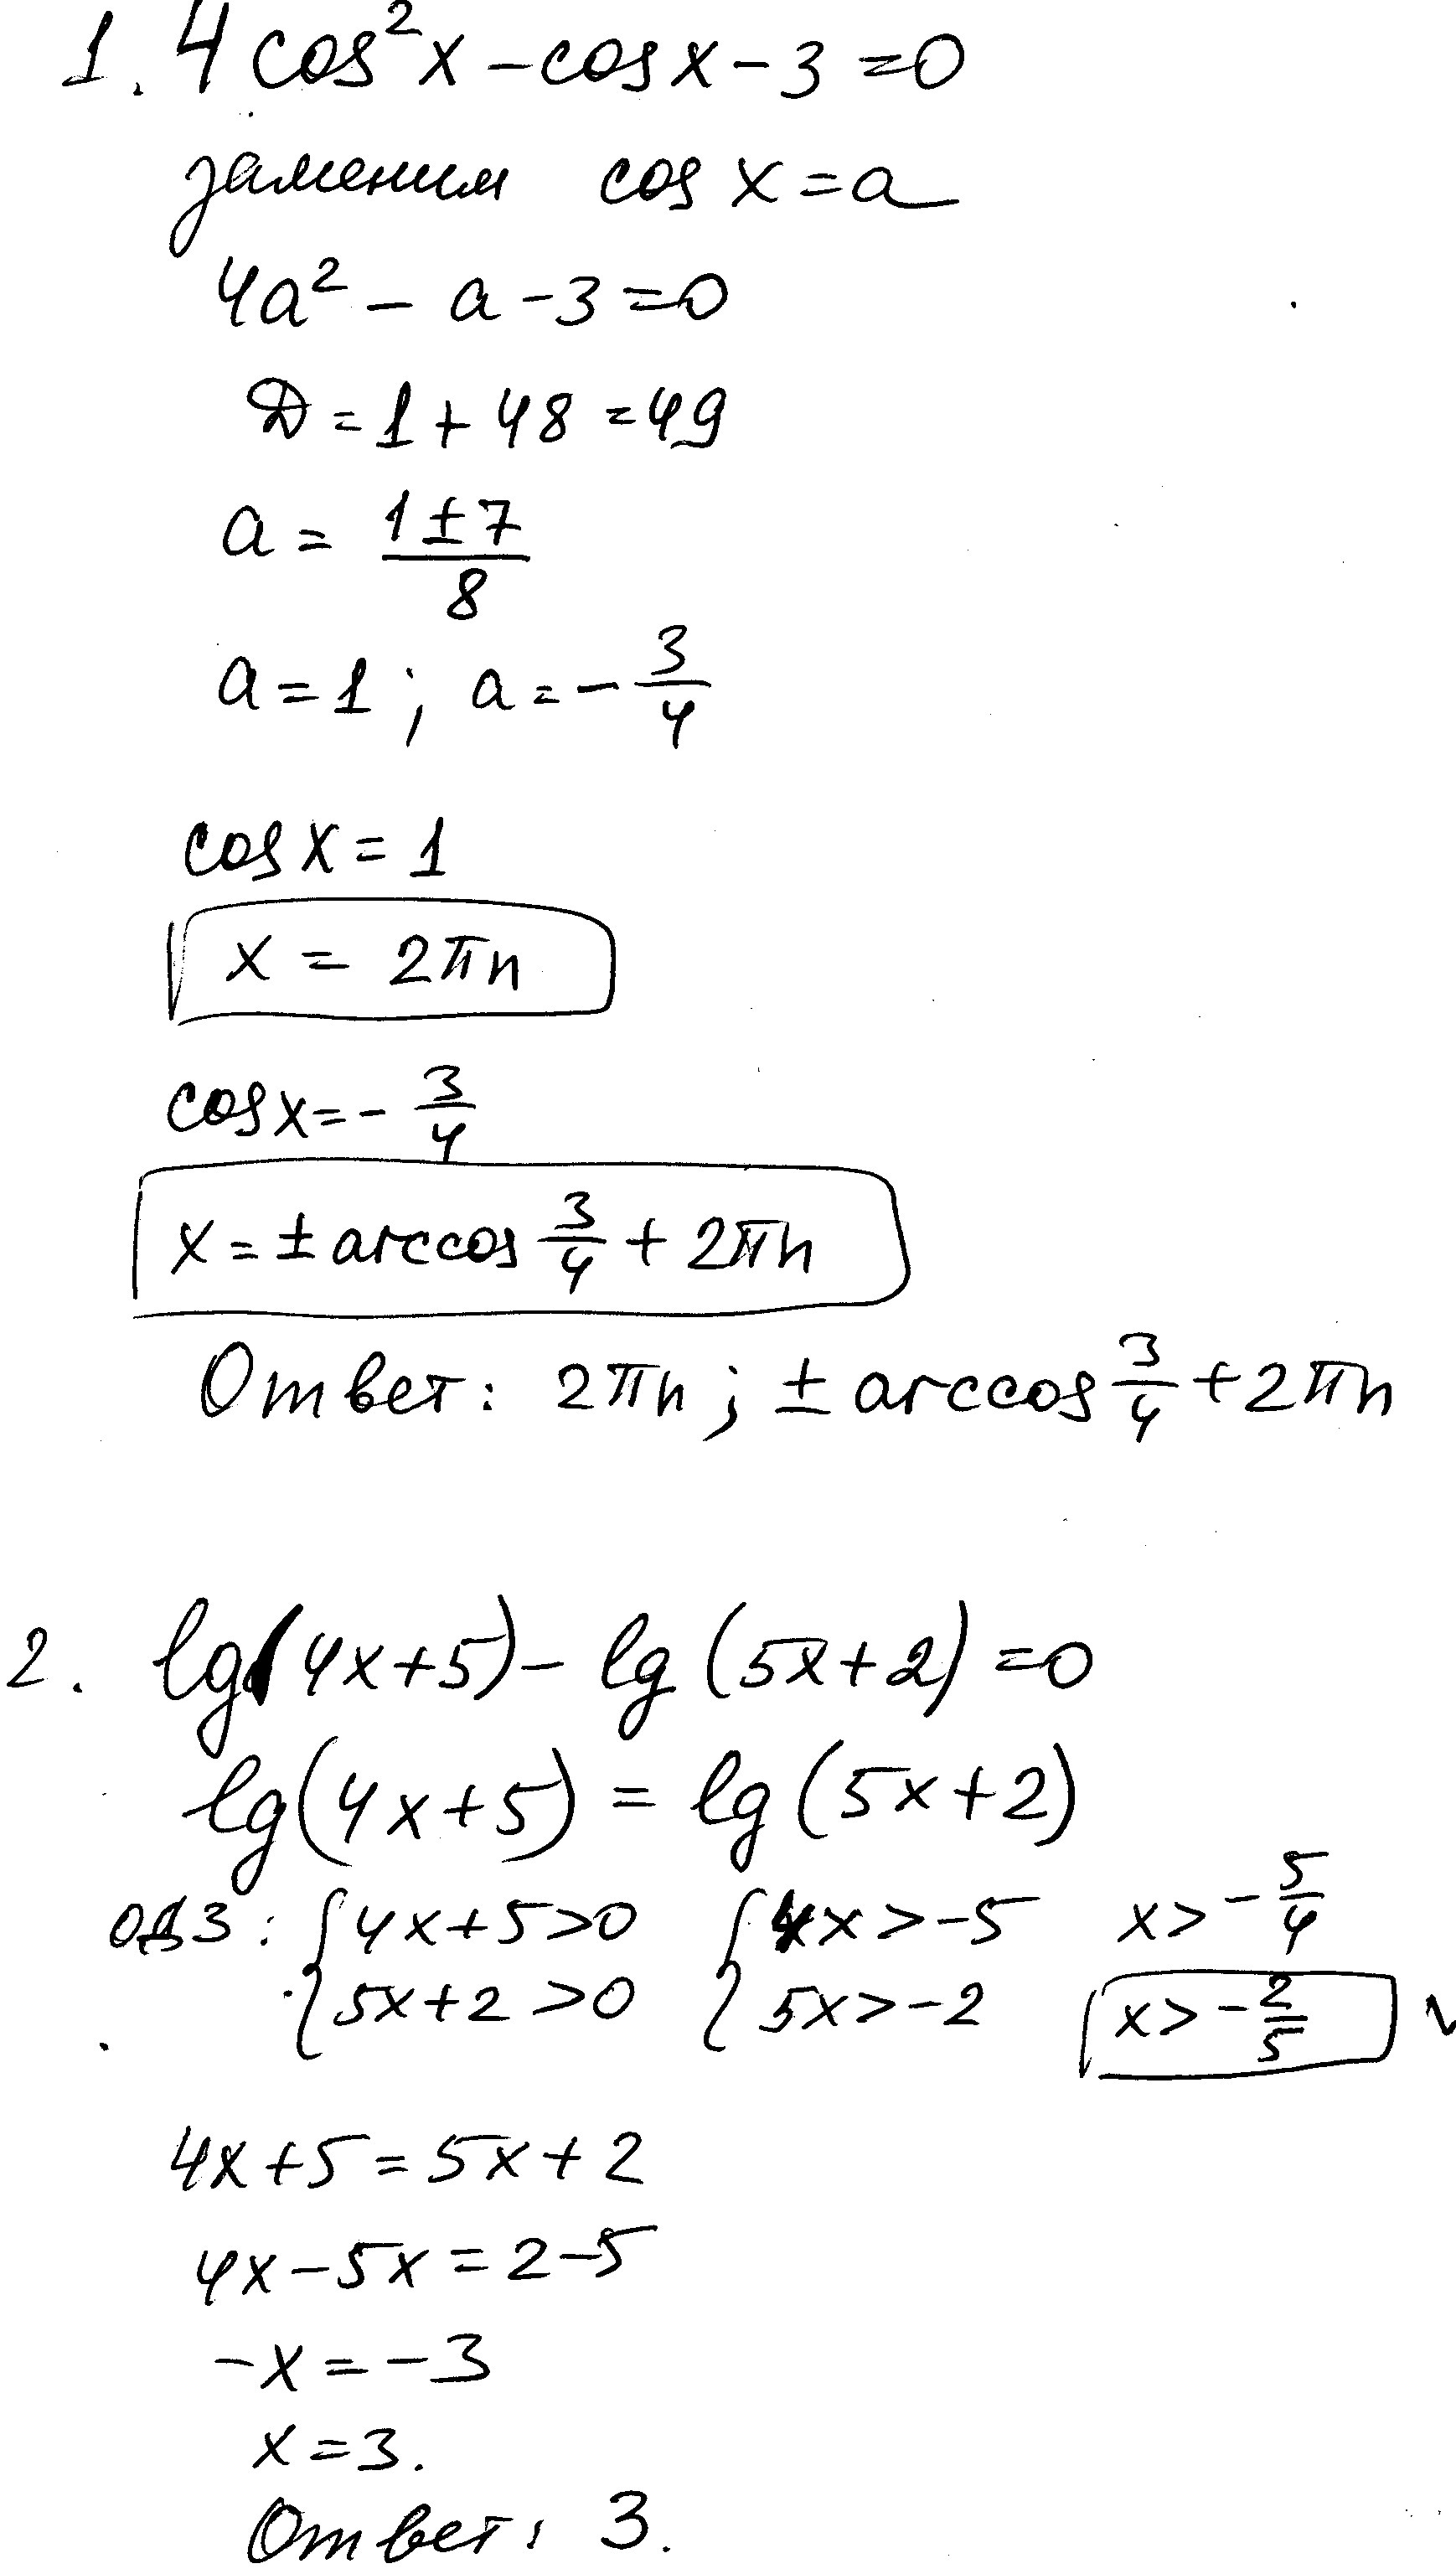 1. 4 cos²x - cos x - 3 = 0
заменим cos x = a
4a² - a - 3 = 0
D = 1 + 48 = 49
a = (1 ± 7)/8
a = 1; a = - 3/4
cos x = 1
x = 2πn
cos x = - 3/4
x = ± arccos 3/4 + 2πn
Ответ: 2πn; ± arccos 3/4 + 2πn
2. lg(4x+5) - lg(5x+2) = 0
lg(4x+5) = lg(5x+2)
ОДЗ: { 4x+5>0 { 4x>-5 x> - 5/4
{ 5x+2>0 { 5x>-2 x> - 2/5 ✓
4x+5 = 5x+2
4x-5x = 2-5
-x = -3
x = 3.
Ответ: 3.